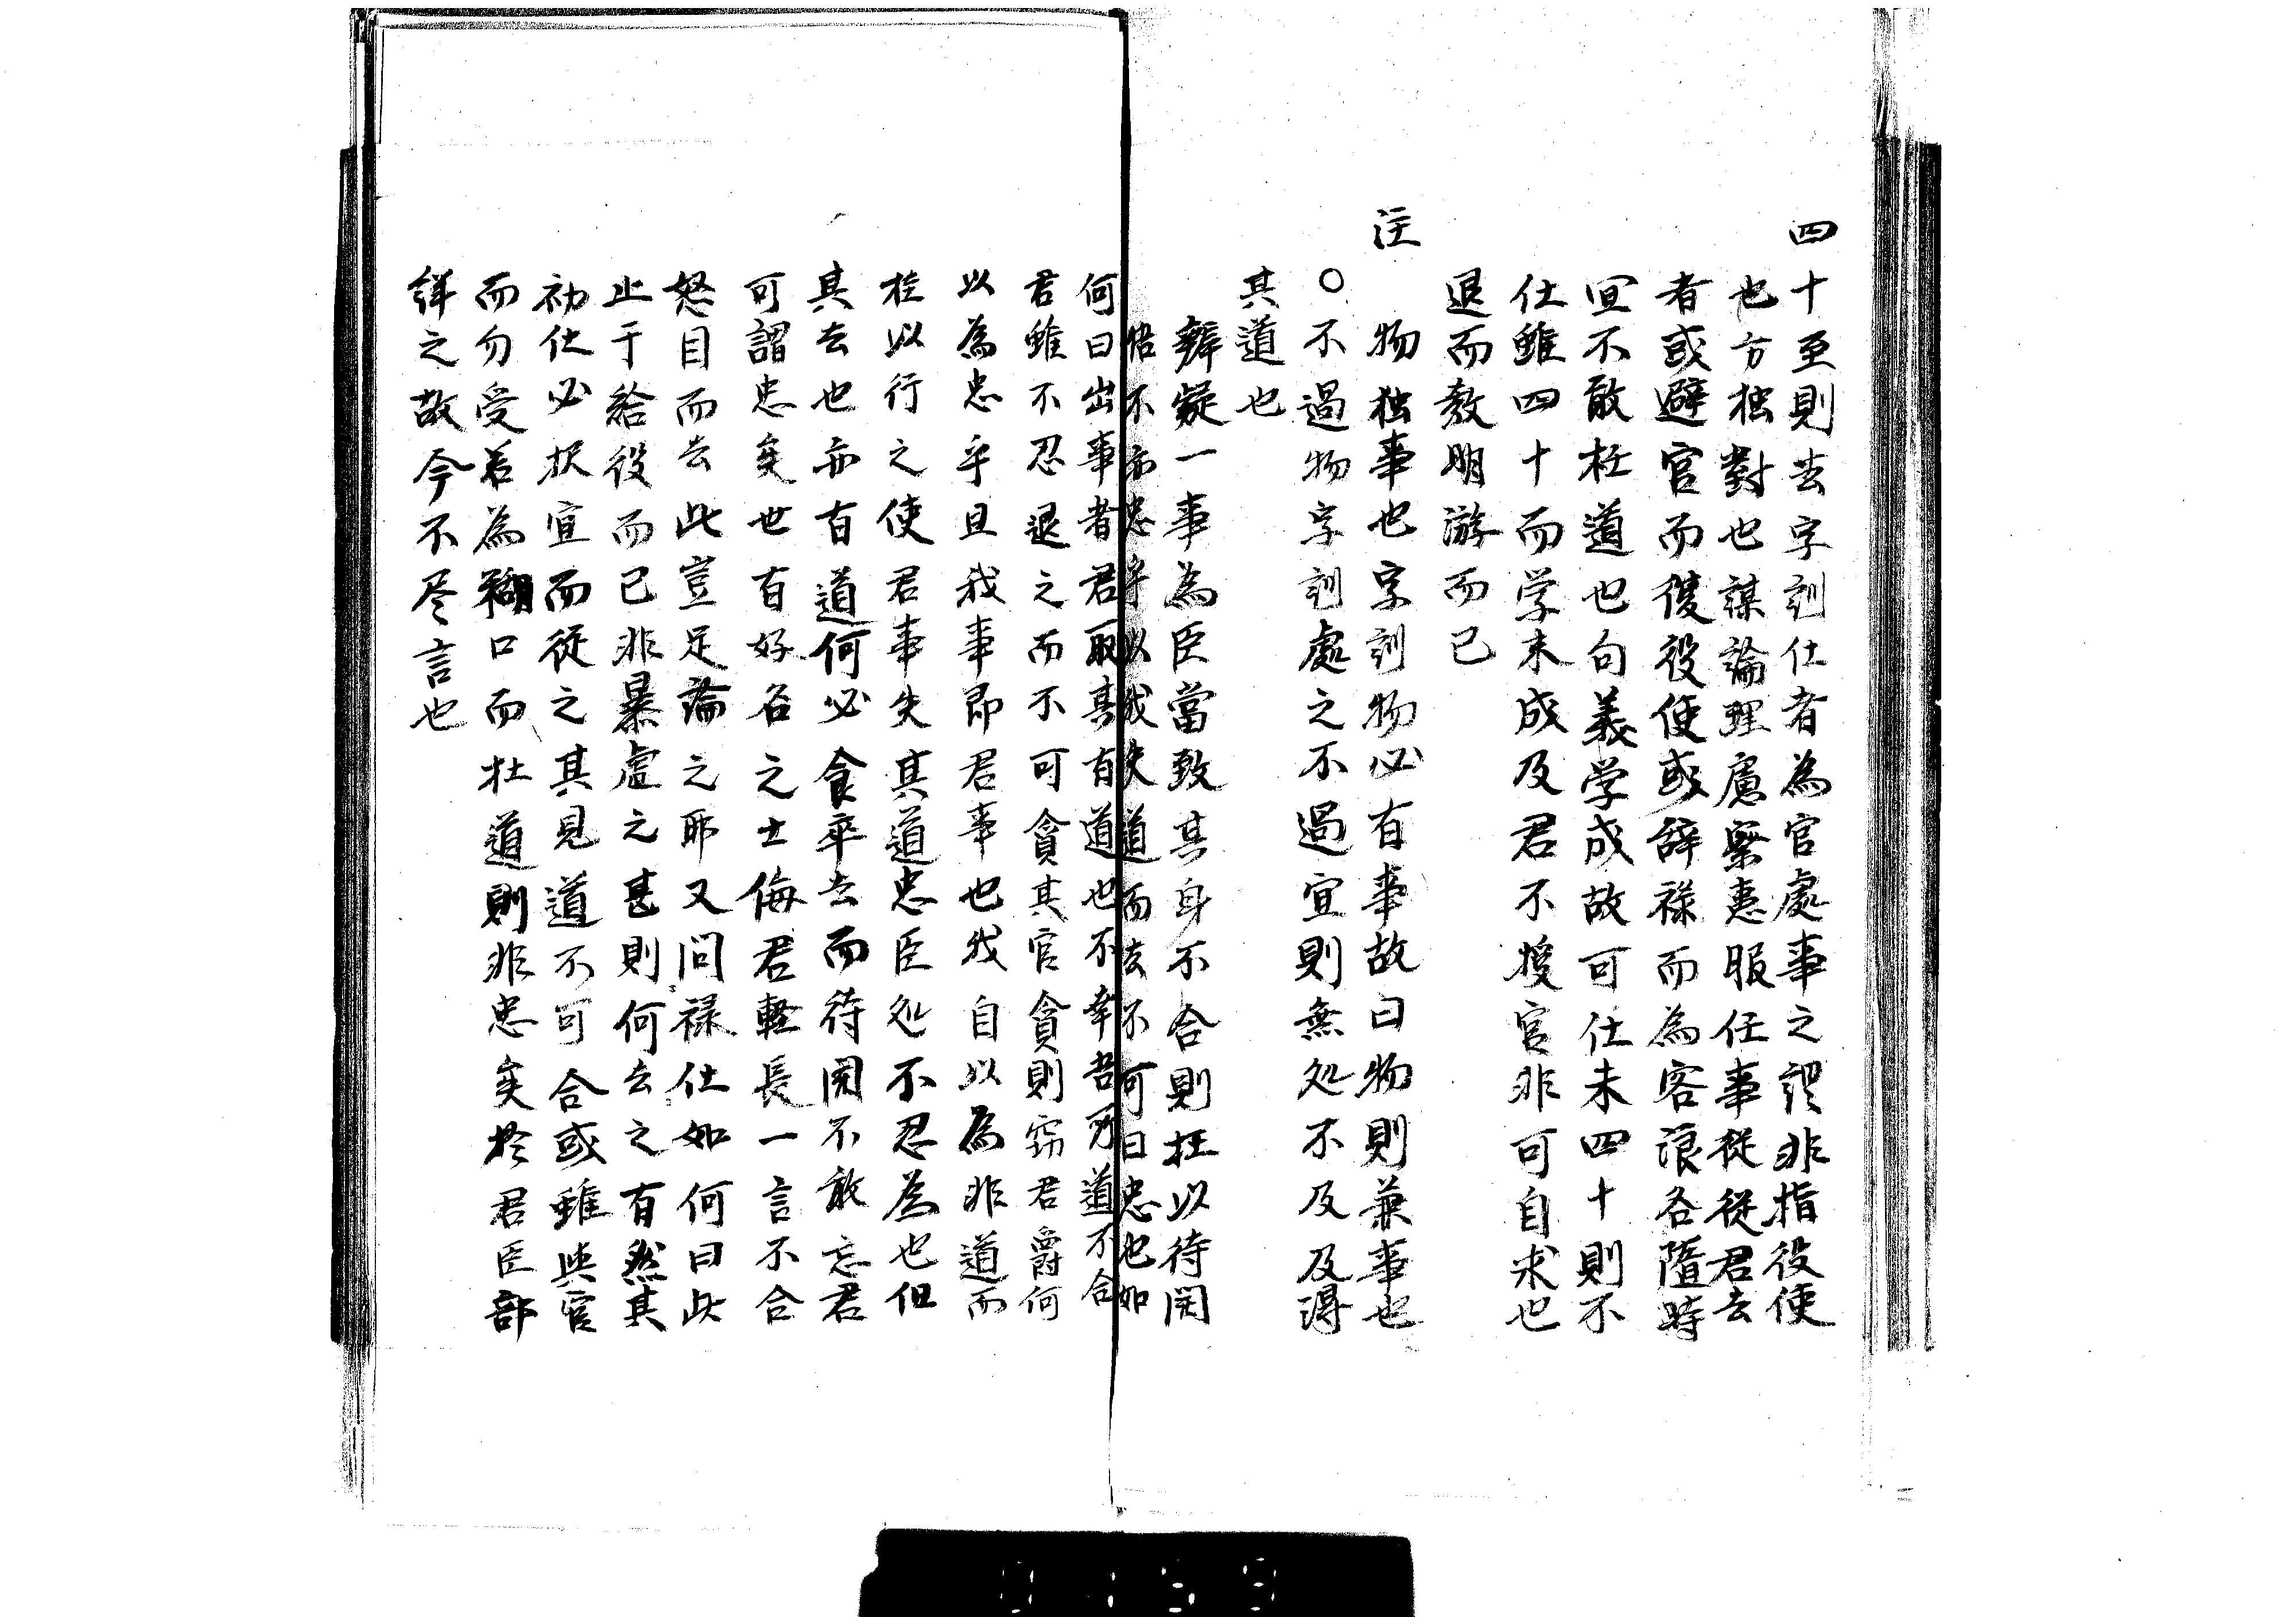 四十至則去字訓仕者為官處事之謂非指役使
也方独對也謀論理慮察恵服任事従從君去
者或避官而僕役使或辞禄而為客浪各隨時
宜不敢枉道也句義学成故可仕未四十則不
仕雖四十而学未成及君不授官非可自求也
退而教明游而已
注 物独事也字訓物必有事故曰物則兼事也
○不過物字訓處之不過宜則無処不及及得
其道也
辨疑一事為臣當致其身不合則枉以待開
悟不亦忠乎以我失道而去不可曰忠也如
何曰出事者君取其有道也不幸吾所道不合
君雖不忍退之而不可貪其官貪則窃君爵何
以為忠乎且我事即君事也我自以為非道而
枉以行之使君事失其道忠臣処不忍為也但
其去也亦有道何必食卒去而待開不敢忘君
可謂忠矣世有好名之士侮君輕長一言不合
怒目而去此豈足論之耶又問禄仕如何曰此
止于給役而已非暴虐之甚則何去之有然其
初仕必択宜而從之其見道不可合或雖与官
而勿受若為糊口而枉道則非忠矣於君臣部
詳之故今不尽言也